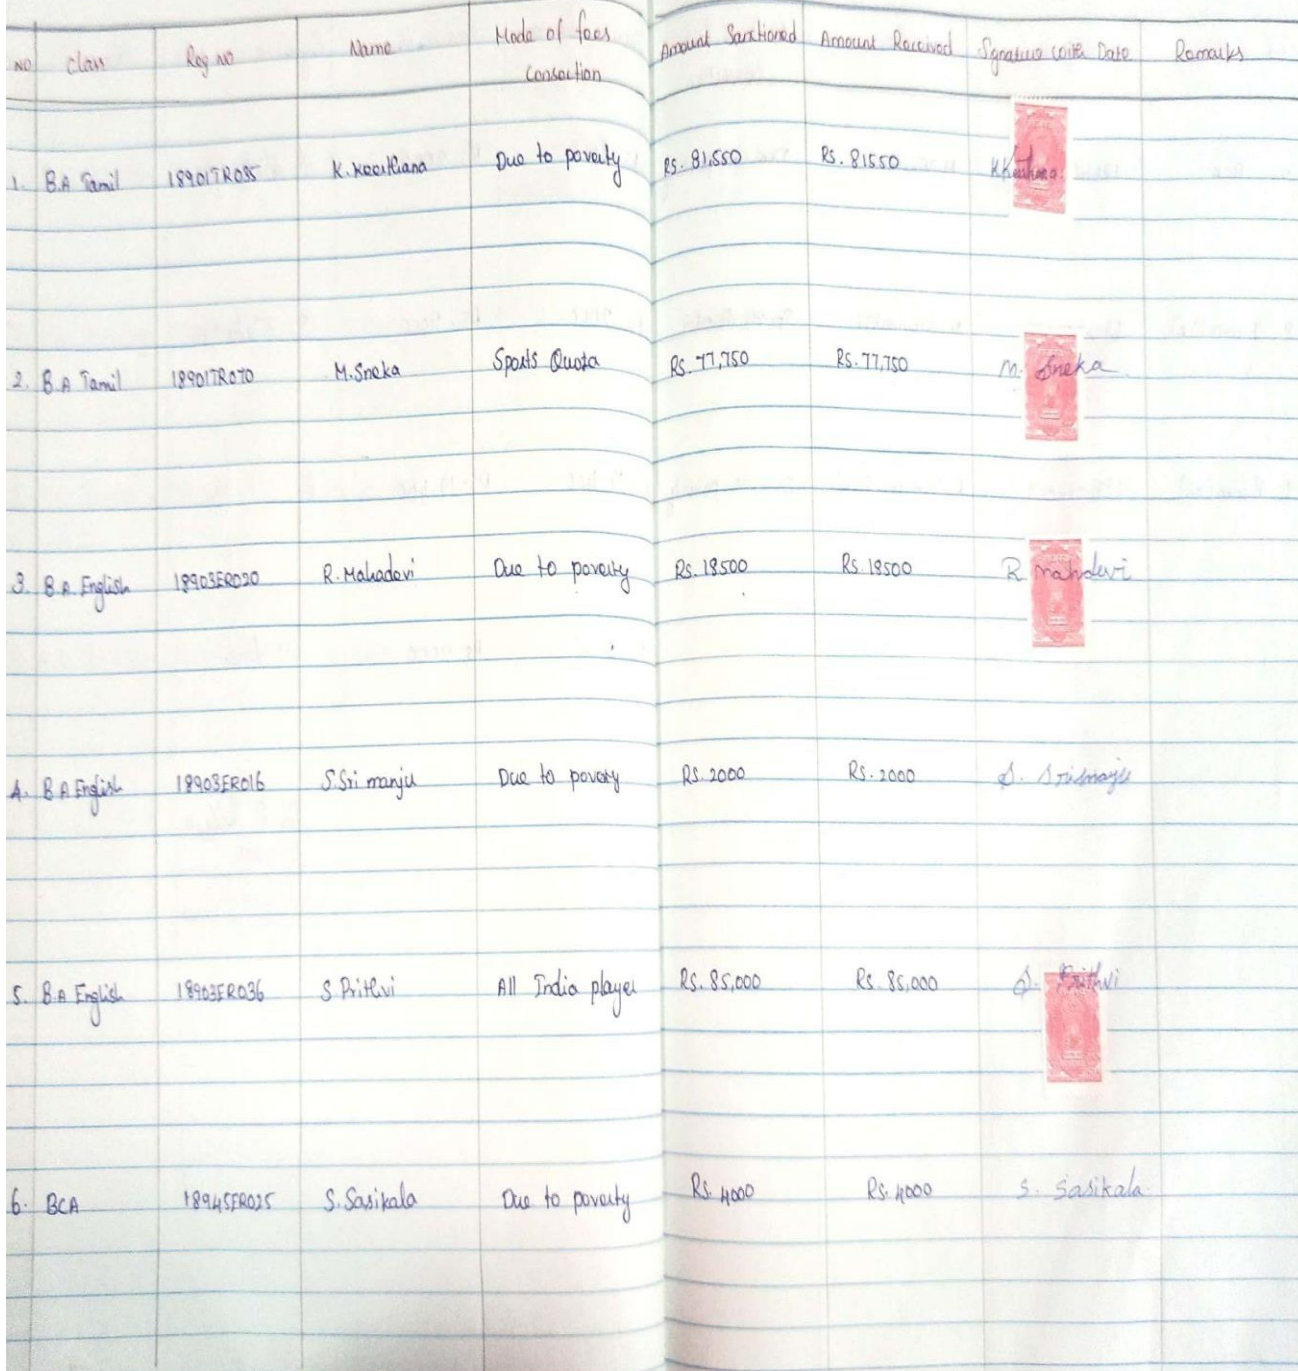 NO Class Reg no Name Mode of fees Amount Sanctioned Amount Received Signature with Date Remarks
Consection
1. B.A Tamil 18901TR035 K. Keerthana Due to poverty Rs. 81,550 Rs. 81550 K Keerthana
2. B.A Tamil 18901TR070 M. Sneka Sports Quota Rs. 77,750 Rs. 77,750 M. Sneka
3. B.A. English 18903ER020 R. Mahadevi Due to poverty Rs. 18500 Rs. 18500 R Mahadevi
4. B A English 18903ER016 S. Sri manju Due to poverty Rs. 2000 Rs. 2000 S. Srimanju
5. B.A English 18903ER036 S Prithvi All India player Rs. 85,000 Rs. 85,000 S. Prithvi
6. BCA 18945ER025 S. Sasikala Due to poverty Rs. 4000 Rs. 4000 S. Sasikala